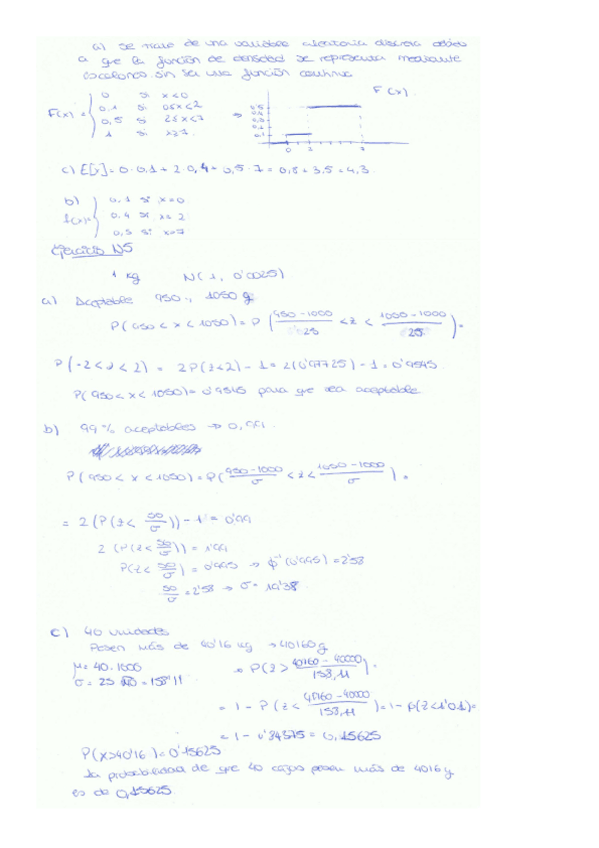 a) Se trata de una variable aleatoria discreta debido
a que la función de densidad se representa mediante
escalones sin ser una función continua
F(x) = { 0 si x<0
0,1 si 0≤x<2
0,5 si 2≤x<7
1 si x≥7
F(x)
c) E[x] = 0·0,1 + 2·0,4 + 0,5·7 = 0,8 + 3,5 = 4,3
b) f(x) = { 0,1 si x=0
0,4 si x=2
0,5 si x=7
Ejercicio N5
1 kg N(1, 0'0025)
a) Aceptable 950 1050 g
P(950<x<1050) = P(950-1000/25 <z< 1050-1000/25) =
P(-2<z<2) = 2P(z<2) - 1 = 2(0'97725) - 1 = 0'9545
P(950<x<1050) = 0'9545 para que sea aceptable
b) 99% aceptables → 0,99.
P(950<x<1050) = P(950-1000/σ <z< 1050-1000/σ) =
= 2(P(z< 50/σ)) - 1 = 0'99
2(P(z< 50/σ)) = 1'99
P(z< 50/σ) = 0'995 → Φ⁻¹(0'995) = 2'58
50/σ = 2'58 → σ = 19'38
c) 40 unidades
Pesen más de 40'16 kg → 40160 g
μ = 40·1000 P(z> 40160-40000/158,11).
σ = 25 √40 = 158'11
= 1 - P(z< 40160-40000/158,11) = 1 - P(z<1'01) =
= 1 - 0'84375 = 0,15625
P(x>40'16) = 0'15625
La probabilidad de que 40 cajas pesen más de 4016 g
es de 0,15625